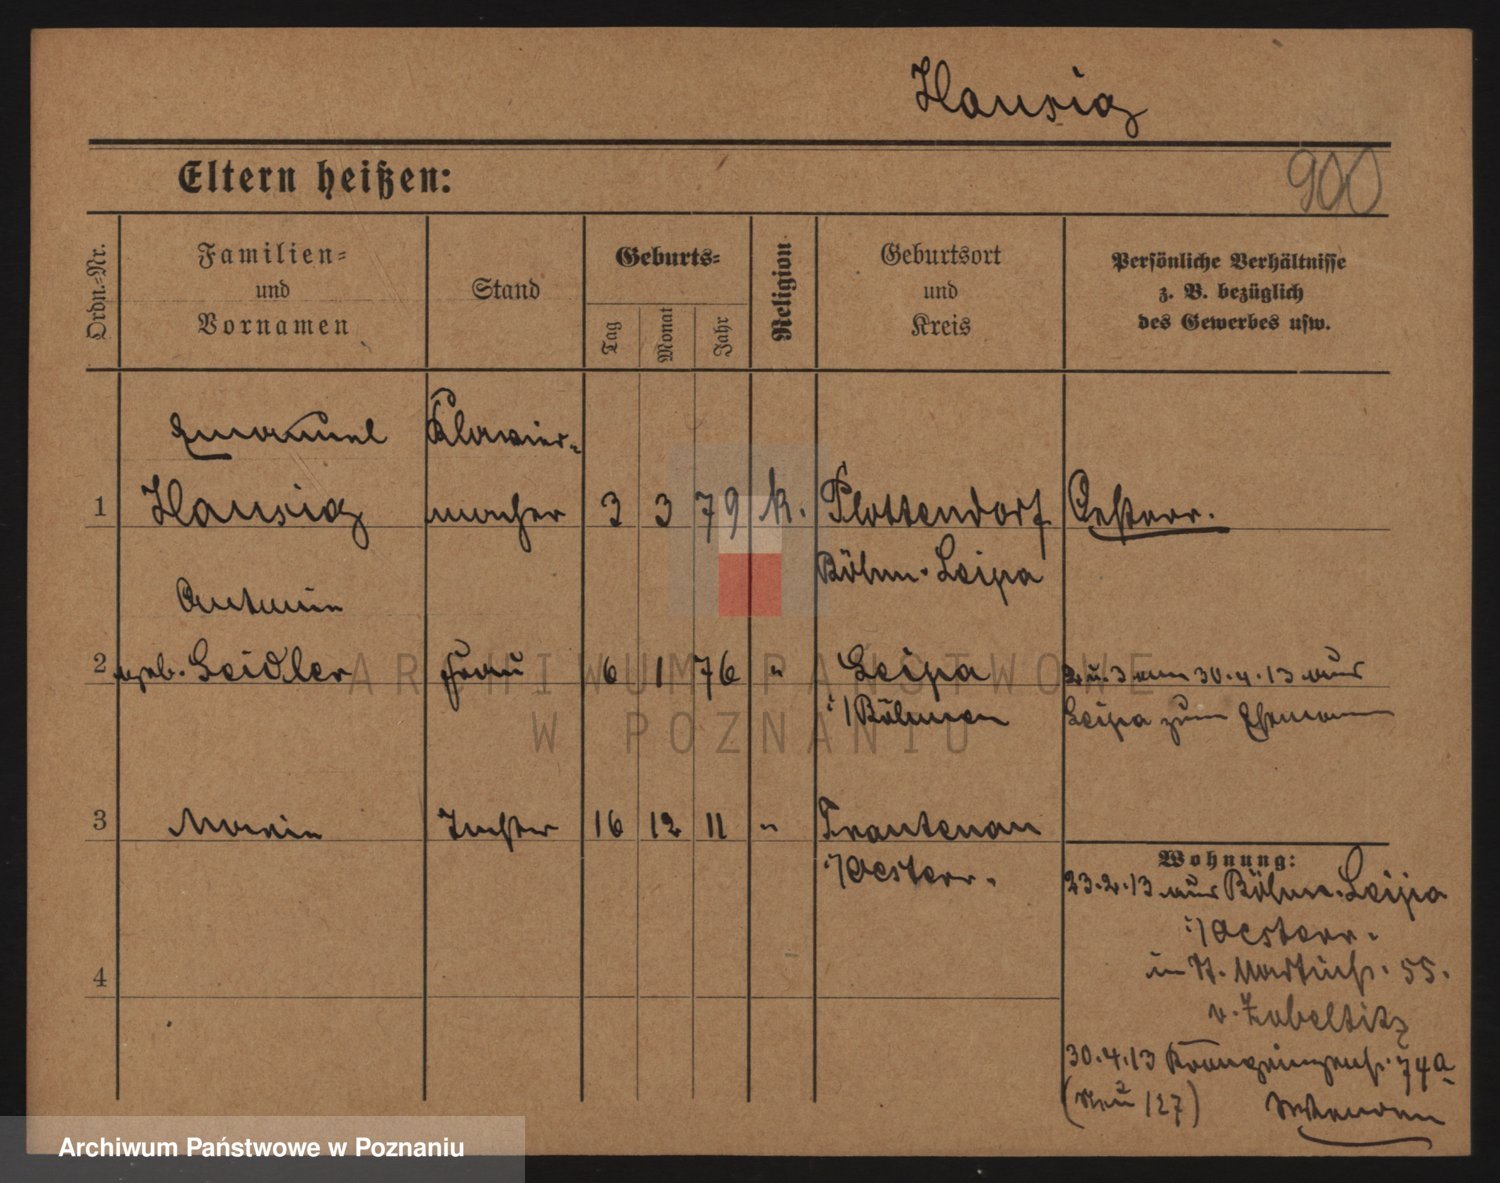 Hausig
900
Eltern heißen:
Ordn.-Nr.
Familien-
und
Vornamen
Stand
Geburts-
Tag
Monat
Jahr
Religion
Geburtsort
und
Kreis
Persönliche Verhältnisse
z. B. bezüglich
des Gewerbes usw.
Emanuel Klavier-
1 Hausig macher 3 3 79 k. Plottendorf Oesterr.
Böhm. Leipa
Antonie
2 geb. Seidler Frau 6 1 76 " Leipa 2 u. 3 am 30.4.13 aus
i/Böhmen Leipa zum Ehemann
3 Maria Tochter 16 12 11 " Trautenau
i/Oesterr.
Wohnung:
23.2.13 aus Böhm. Leipa
i/Oesterr.
in St. Martinstr. 55.
v. Zabeltitz
4
30.4.13 74a
(Neu 127)
ARCHIWUM PAŃSTWOWE
W POZNANIU
Archiwum Państwowe w Poznaniu